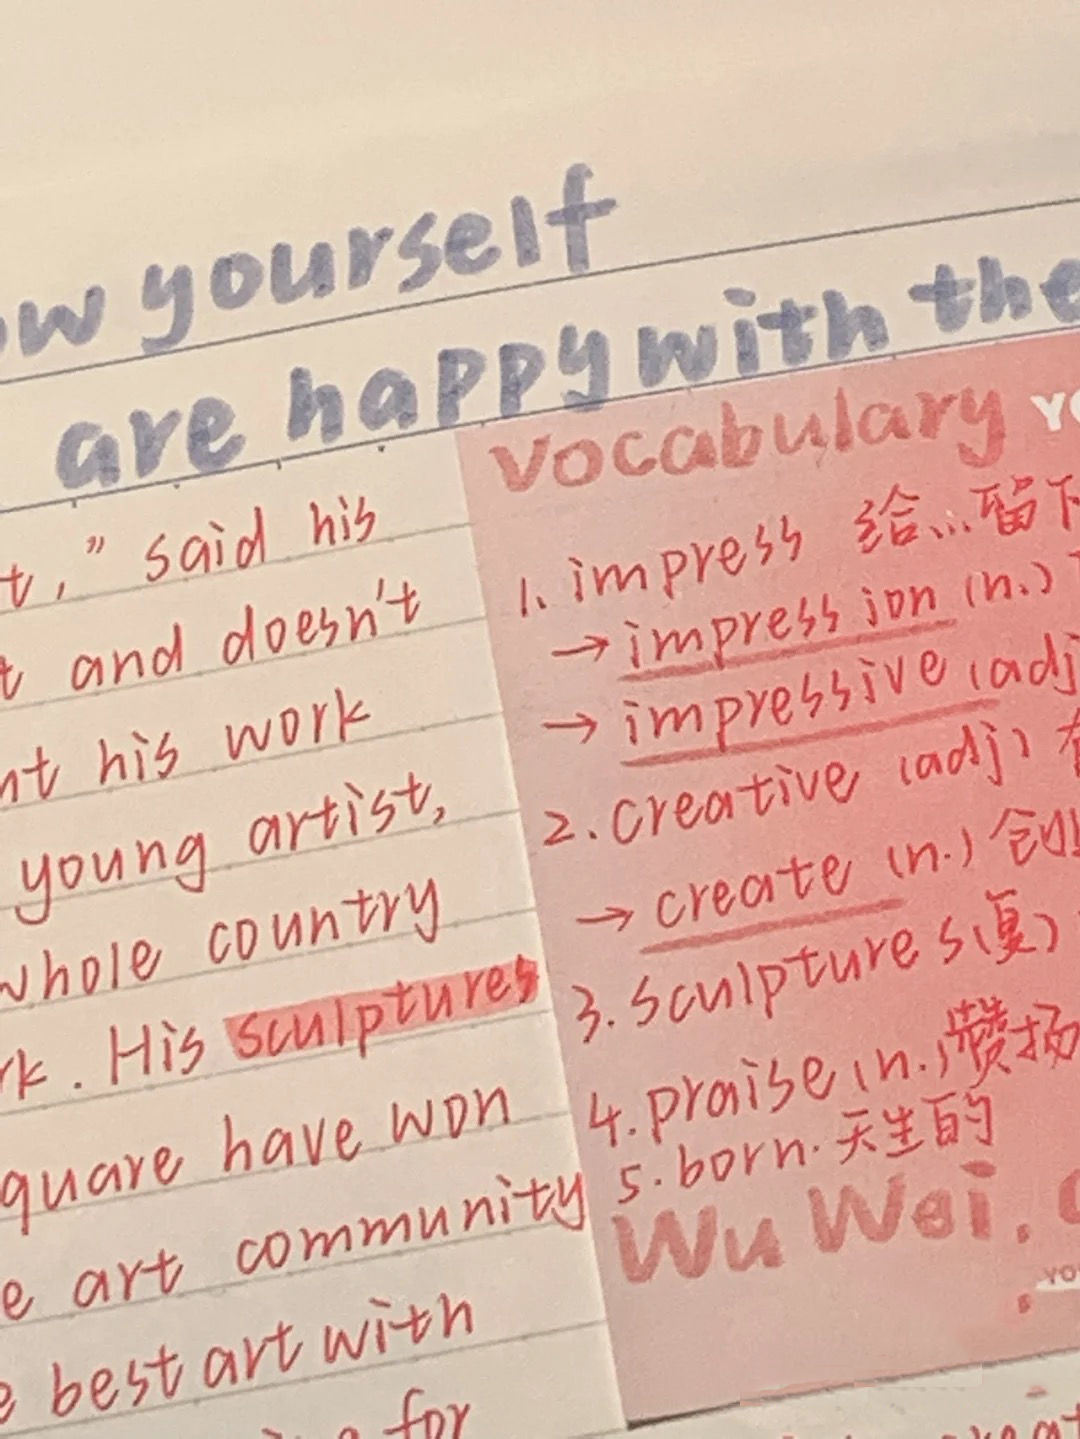 yourself
are happy with the
" said his
and doesn't
his work
young artist,
whole country
. His sculptures
have won
art community
best art with
for
Vocabulary
1. impress 给...留下
→ impression (n.)
→ impressive (adj
2. creative (adj)
→ create (n.) 创
3. sculptures (复)
4. praise (n.) 赞扬
5. born. 天生的
Wu Wei.